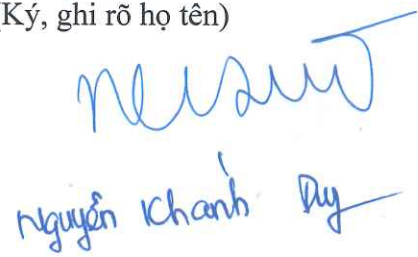 Ký, ghi rõ họ tên)
Nguyễn Khánh Duy